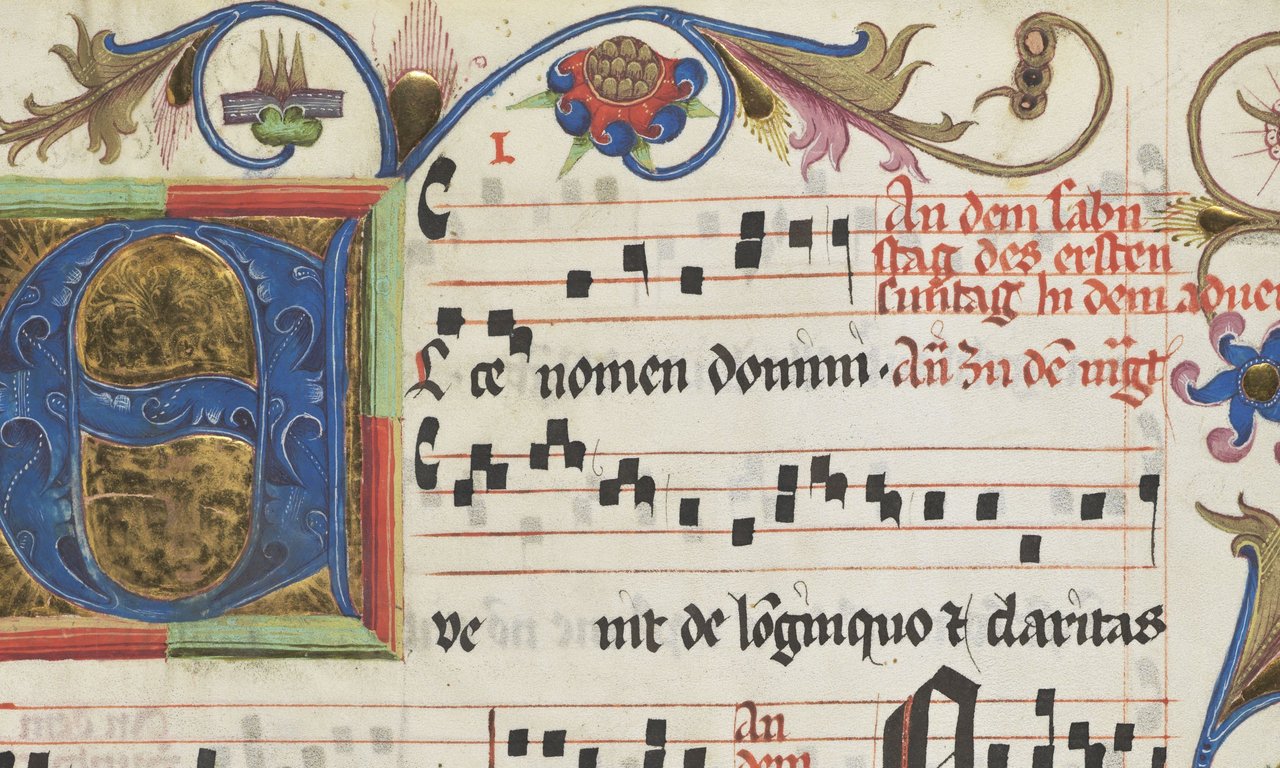 I
An dem sabn
stag des ersten
suntag In dem aduen
E cce nomen domini · An̄ Zu dē
ve nit de lōginquo ⁊ claritas
An
dem